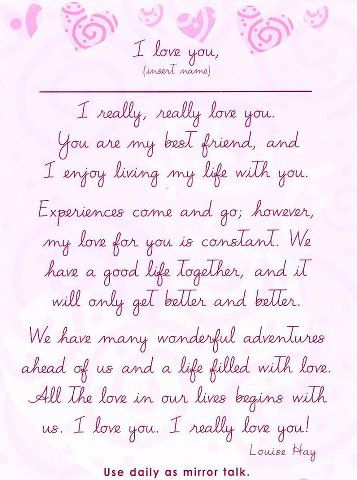 I love you,
(insert name)
I really, really love you.
You are my best friend, and
I enjoy living my life with you.
Experiences come and go; however,
my love for you is constant. We
have a good life together, and it
will only get better and better.
We have many wonderful adventures
ahead of us and a life filled with love.
All the love in our lives begins with
us. I love you. I really love you!
Louise Hay
Use daily as mirror talk.